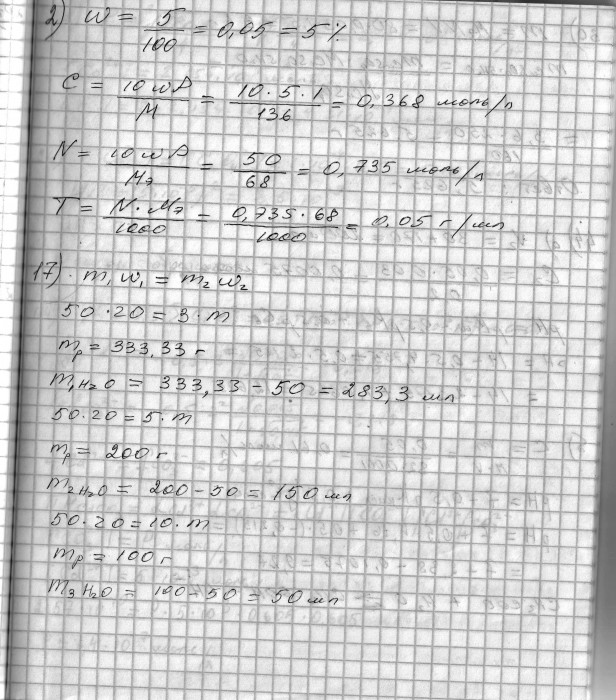 2) w = 5/100 = 0,05 = 5%
C = 10wρ/M = 10·5·1/136 = 0,368 моль/л
N = 10wρ/Mэ = 50/68 = 0,735 моль/л
T = N·Mэ/1000 = 0,735·68/1000 = 0,05 г/мл
17) m₁w₁ = m₂w₂
50·20 = 3·m
mр = 333,33 г
m₁H₂O = 333,33 - 50 = 283,3 мл
50·20 = 5·m
mр = 200 г
m₂H₂O = 200 - 50 = 150 мл
50·20 = 10·m
mр = 100 г
m₃H₂O = 100 - 50 = 50 мл